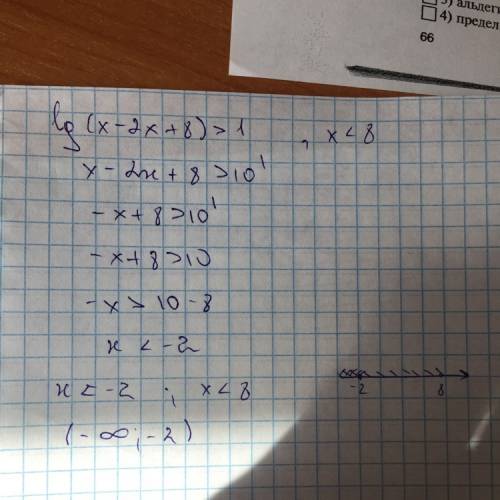 3) альдеги
4) предел
66
lg(x-2x+8)>1 , x<8
x-2x+8>10¹
-x+8>10¹
-x+8>10
-x>10-8
x<-2
x<-2 ; x<8
-2 8
(-∞;-2)